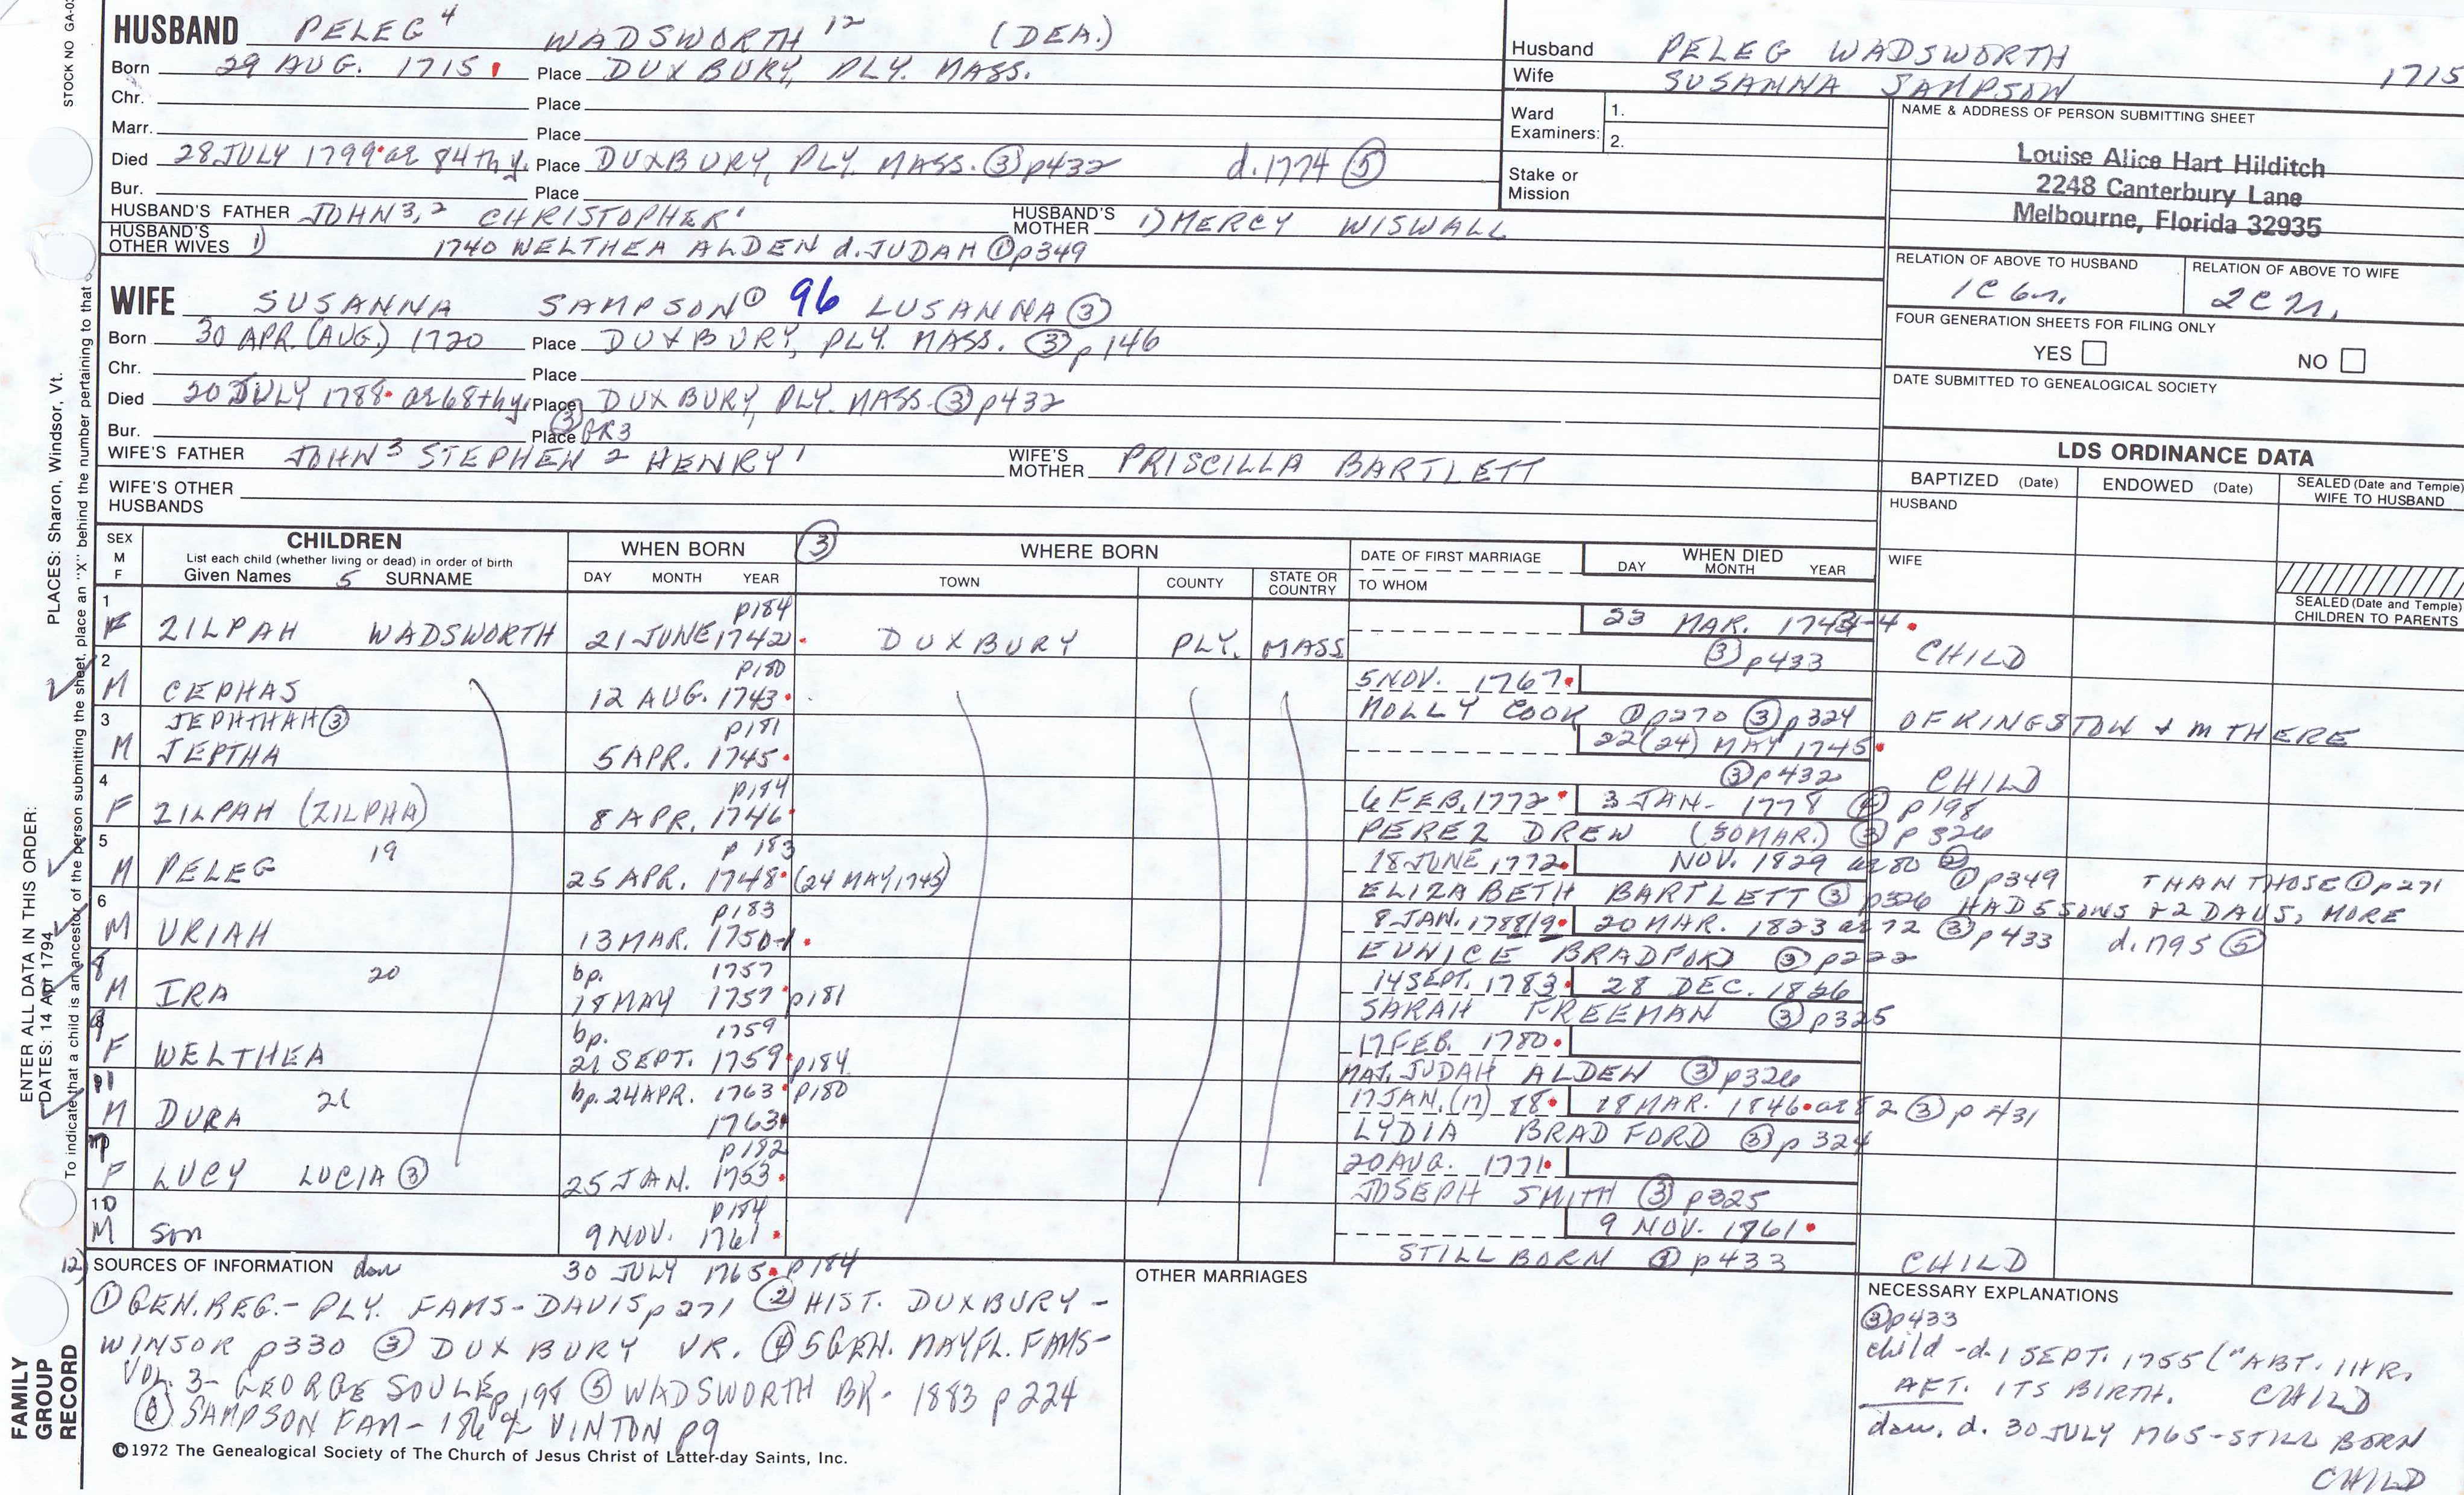 STOCK NO GA-0
HUSBAND PELEG 4 WADSWORTH 12 (DEA.)
Born 29 AUG. 1715 Place DUXBURY, PLY. MASS.
Chr. Place
Marr. Place
Died 28 JULY 1799 ae 84th y. Place DUXBURY, PLY. MASS. ③ p432 d. 1774 ⑤
Bur. Place
HUSBAND'S FATHER JOHN 3,2 CHRISTOPHER 1 HUSBAND'S MOTHER 1) MERCY WISWALL
HUSBAND'S OTHER WIVES 1) 1740 WELTHEA ALDEN d. JUDAH ① p349
Husband PELEG WADSWORTH 1715
Wife SUSANNA SAMPSON
Ward Examiners: 1.
2.
Stake or Mission
NAME & ADDRESS OF PERSON SUBMITTING SHEET
Louise Alice Hart Hilditch
2248 Canterbury Lane
Melbourne, Florida 32935
RELATION OF ABOVE TO HUSBAND RELATION OF ABOVE TO WIFE
1C 6r.
FOUR GENERATION SHEETS FOR FILING ONLY
YES NO
DATE SUBMITTED TO GENEALOGICAL SOCIETY
WIFE SUSANNA SAMPSON ① 96 LUSANNA ③
Born 30 APR. (AUG.) 1720 Place DUXBURY, PLY. MASS. ③ p146
Chr. Place
Died 20 JULY 1788 ae 68th y. Place DUXBURY, PLY. MASS. ③ p432
Bur. Place ③ GR3
WIFE'S FATHER JOHN 3 STEPHEN 2 HENRY 1 WIFE'S MOTHER PRISCILLA BARTLETT
WIFE'S OTHER HUSBANDS
LDS ORDINANCE DATA
BAPTIZED (Date) ENDOWED (Date) SEALED (Date and Temple) WIFE TO HUSBAND
HUSBAND
WIFE
SEALED (Date and Temple) CHILDREN TO PARENTS
SEX M F CHILDREN
List each child (whether living or dead) in order of birth
Given Names 5 SURNAME
WHEN BORN ③ WHERE BORN
DAY MONTH YEAR TOWN COUNTY STATE OR COUNTRY
DATE OF FIRST MARRIAGE
TO WHOM
WHEN DIED
DAY MONTH YEAR
1 p184 23 MAR. 1743-4
F ZILPAH WADSWORTH 21 JUNE 1742 DUXBURY PLY. MASS ③ p433 CHILD
2 p180 5 NOV. 1767
M CEPHAS 12 AUG. 1743 MOLLY COOK ① p270 ③ p324 OF KINGSTON & M THERE
3 JEPHTHAH ③ p181 22 (24) MAY 1745
M JEPTHA 5 APR. 1745 ③ p432 CHILD
4 p184 6 FEB. 1772 3 JAN. 1778 ④ p198
F ZILPAH (ZILPHA) 8 APR. 1746 PEREZ DREW (30 MAR.) ③ p326
5 19 p183 18 JUNE 1772 NOV. 1829 ae 80 ②
M PELEG 25 APR. 1748 (24 MAY 1745) ELIZABETH BARTLETT ③ p326
① p349 THAN THOSE ① p271
HAD 5 SONS & 2 DAUS, MORE
6 p183 8 JAN. 1788/9 20 MAR. 1823 ae 72 ③ p433 d. 1795 ⑤
M URIAH 13 MAR. 1750-1 EUNICE BRADFORD ③ p222
8 20 bp. 1757 14 SEPT. 1783 28 DEC. 1826
M IRA 18 MAY 1757 p181 SARAH FREEMAN ③ p325
bp. 1759 17 FEB. 1780
F WELTHEA 21 SEPT. 1759 p184 MAJ. JUDAH ALDEN ③ p326
11 21 bp. 24 APR. 1763 p180 17 JAN. (17) 88 18 MAR. 1846 ae 82 ③ p431
M DURA 1763 LYDIA BRADFORD ③ p324
p182 20 AUG. 1771
F LUCY LUCIA ③ 25 JAN. 1753 JOSEPH SMITH ③ p325
10 p184 9 NOV. 1761
M Son 9 NOV. 1761 STILL BORN ③ p433 CHILD
12) SOURCES OF INFORMATION dau 30 JULY 1765 p184
① GEN. REG. - PLY. FAMS - DAVIS p271 ② HIST. DUXBURY -
WINSOR p330 ③ DUXBURY VR. ④ 5 GEN. MAYFL. FAMS -
VOL. 3 - GEORGE SOULE p198 ⑤ WADSWORTH BK - 1883 p224
⑥ SAMPSON FAM - 1864 VINTON p9
©1972 The Genealogical Society of The Church of Jesus Christ of Latter-day Saints, Inc.
OTHER MARRIAGES
NECESSARY EXPLANATIONS
③ p433
child - d. 1 SEPT. 1755 ("ABT. 1 HR.
AFT. ITS BIRTH. CHILD
dau. d. 30 JULY 1765 - STILL BORN
CHILD
FAMILY GROUP RECORD
ENTER ALL DATA IN THIS ORDER:
DATES: 14 Apr 1794
PLACES: Sharon, Windsor, Vt.
To indicate that a child is an ancestor of the person submitting the sheet, place an "X" behind the number pertaining to that